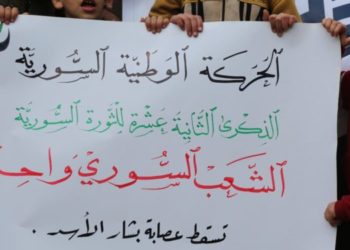 الحَرَكَة الوَطَنِيَّة السُّورِيَّة
الذِكرىٰ الثَّانِيَة عَشَرَة لِلثَّورَة السُّورِيَّة
الشَّعبُ السُّوري وَاحِد
تسقط عصابة بشار الأسد .